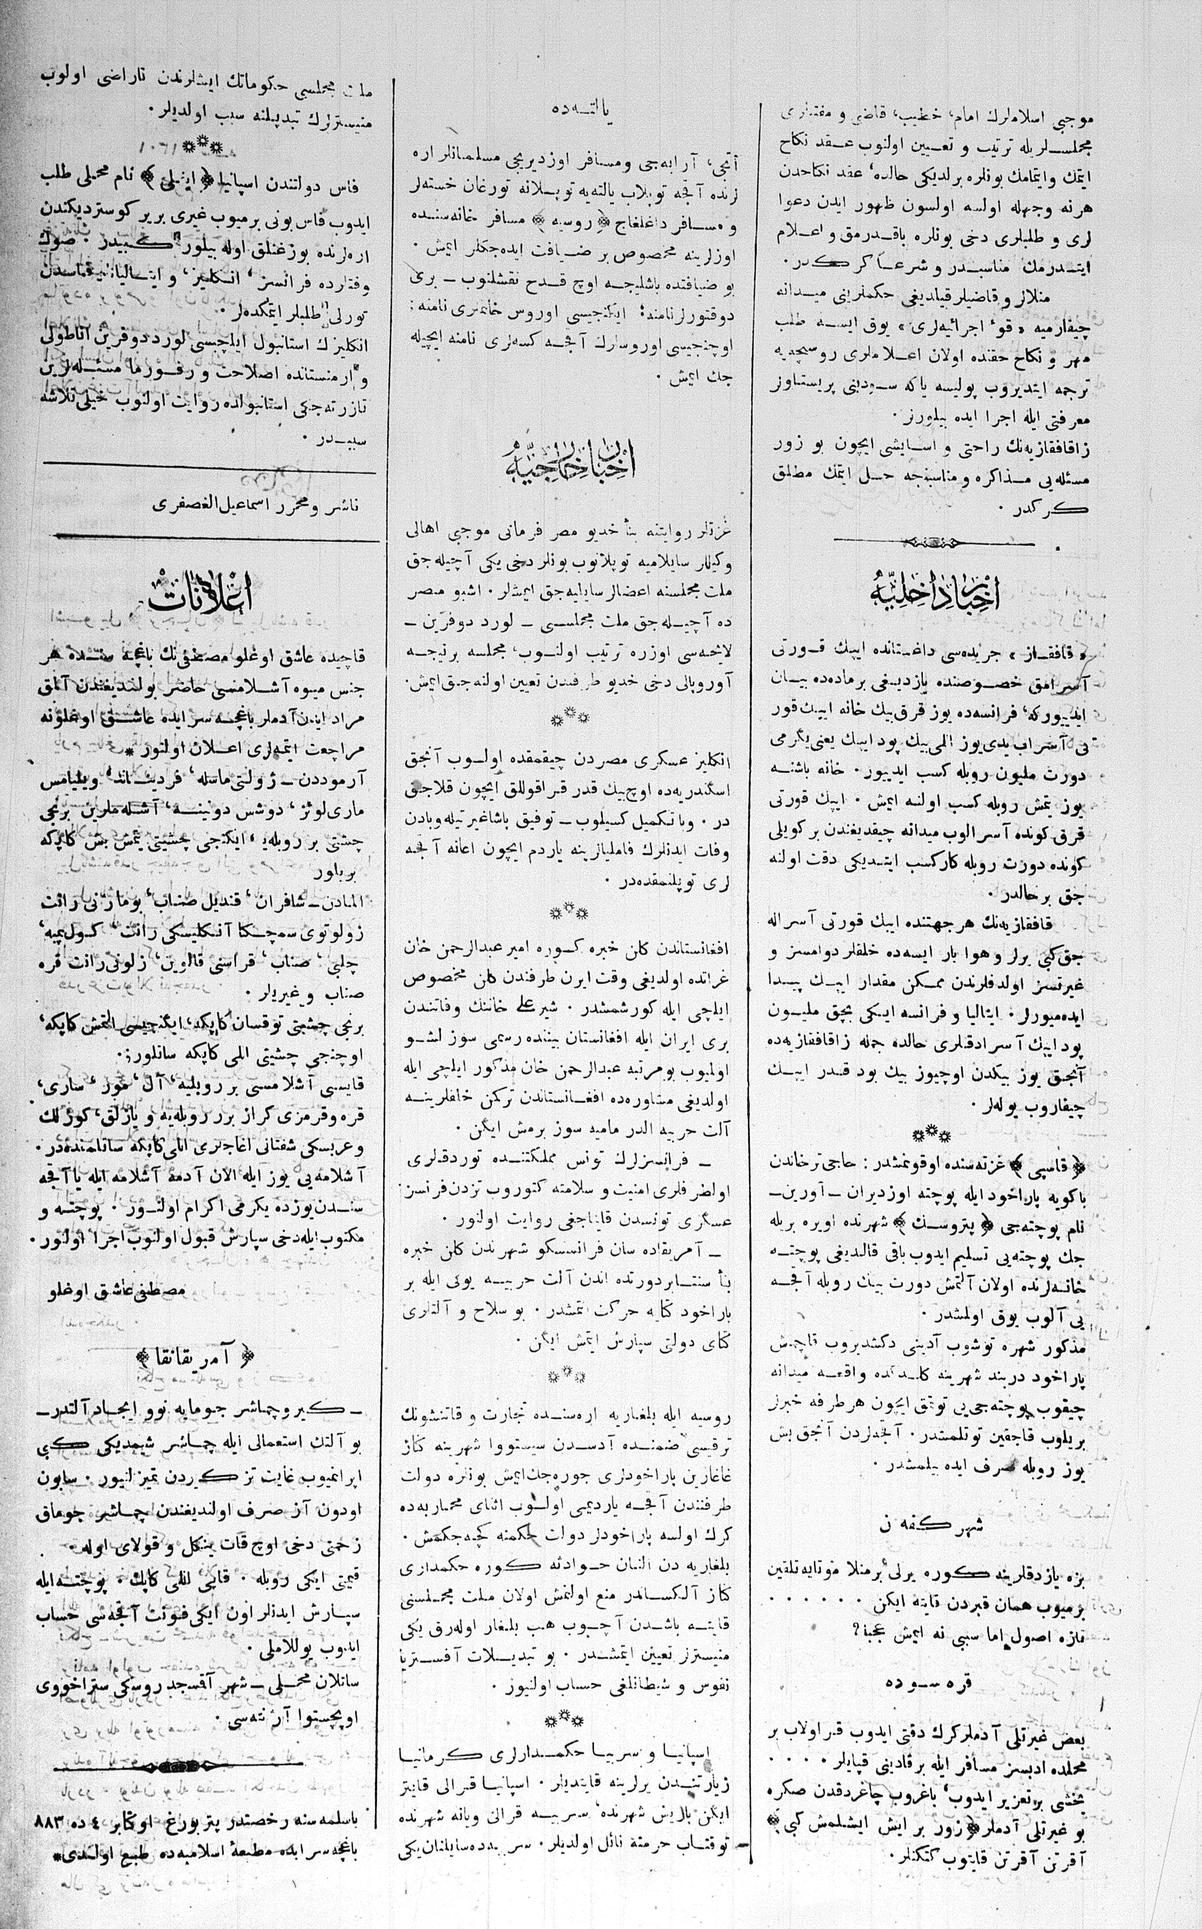 موجبی اسلاملرك امام، خطیب، قاضی و مفتیلری
مجلسلریله ترتیب و تعیین اولنوب عقد نكاح
ایتمك وایتمامك بونلره برلدیكی حالده، عقد نكاحدن
هر نه وجهله اولسه اولسون ظهور ایدن دعوا
لری و طلبلری دخی بونلره باقدرمق و اعلام
ایتدرمك مناسبدر و شرعا كركدر.
منلالر و قاضیلر قیلدیغی حكملرینی میدانه
چیقارمیه «قوۀ اجرائیه‌لری» یوق ایسه طلب
مهر و نكاح حقنده اولان اعلاملری روسیچه‌یه
ترجمه ایتدیروب پولیسه یاكه سودینی پریستاوز
معرفتی ایله اجرا ایده بیلورز.
زاقافقازیه‌نك راحتی و اسایشی ایچون بو زور
مسئله‌یی مذاكره و مناسبنجه حل ایتمك مطلق
كركدر.
اخبار داخلیه
«قافقاز» جریده‌سی داغستانده ایپك قورتی
آسرامق خصوصنده یازدیغی برماده‌ده بیان
ایدییوركه، فرانسه‌ده یوز قرق بیك خانه ایپك قور
تی آسراب یدی یوز اللی بیك پود ایپك یعنی یگرمی
دورت ملیون روبله كسب ایدییور. خانه باشنه
یوز یتمش روبله كسب اولنه ایمش. ایپك قورتی
قرق كونده آسرالوب میدانه چیقدیغندن بر كویلی
كونده دورت روبله كار كسب ایتدیكی دقت اولنه
جق بر حالدر.
قافقازیه‌نك هر جهتنده ایپك قورتی آسراله
جق كبی یرلر و هوا بار ایسه‌ده خلقلر دوامسز و
غیرتسز اولدقلرندن ممكن مقدار ایپك پیدا
ایده‌میورلر. ایتالیا و فرانسه ایكی بچق ملیون
پود ایپك آسرادقلری حالده جمله زاقافقازیه‌ده
آنجق یوز بیكدن اوچیوز بیك پود قدر ایپك
چیقاروب یوله‌لر.
﴿قاسپی﴾ غزته‌سنده اوقونمشدر: حاجی ترخاندن
باكویه پاراخود ایله پوچته اوزدیران ــ آورین ــ
نام پوچته‌جی ﴿پتروسك﴾ شهرنده اویره بریله
جك پوچته‌یی تسلیم ایدوب باقی قالدیغی پوچته
خانه‌لرنده اولان آلتمش دورت بیك روبله آقچه
یی آلوب یوق اولمشدر.
مذكور شهره توشوب آدینی دكشدیروب قاچمش
پاراخود دربند شهرینه كلدكده واقعه میدانه
چیقوب پوچته‌جی‌یی توتمق ایچون هر طرفه خبرلر
بریلوب قاچقین توتلمشدر. آقچه‌لردن آنجق بش
یوز روبله صرف ایده بیلمشدر.
شهر كفه‌دن
بزه یازدقلرینه كوره یرلی بر منلا موتایه تلقین
برمیوب همان قبردن قایته ایكن . . . . . .
تازه اصول اما سببی نه ایمش عجبا؟
قره سوده
بعض غیرتلی آدملر كرك دقتی ایدوب قراولاب بر
محلده ادبسز مسافر ایله بر قادینی قیایلر . . . .
یخشی بر تعزیر ایدوب، یاغروب چاغردقدن صكره
بو غیرتلی آدملر ﴿زور بر ایش ایشلمش كبی﴾
آقرتن آقرتن قایتوب كتكنلر.
یالته‌ده
آتجی، آرابه‌جی ومسافر اوزدیریجی مسلمانلر اره
لرنده آقچه توپلاب یالته‌یه توپلانه تورغان خسته‌لر
و مسافر داغلغاج ﴿روسیه﴾ مسافر خانه‌سنده
اوزلرینه مخصوص بر ضیافت ایده‌جكلر ایمش.
بو ضیافتده باشلیجه اوچ قدح نقشلنوب ــ بری
دوقتورلر نامنه؛ ایكنجیسی اوروس خانملری نامنه؛
اوچنجیسی اوروسلرك آقچه كسه‌لری نامنه ایچیله
جك ایمش.
اخبار خارجیه
غزتلر روایتنه بنأ خدیو مصر فرمانی موجبی اهالی
وكیللر سایلامیه توپلانوب بونلر دخی یكی آچیله جق
ملت مجلسنه اعضالر سایلیه جق ایمشلر. اشبو مصر
ده آچیله جق ملت مجلسی ــ لورد دوفرین ــ
لایحه‌سی اوزره ترتیب اولنوب، مجلسه برنیچه
آوروپالی دخی خدیو طرفندن تعیین اولنه جق ایمش.
انكلیز عسكری مصردن چیقمقده اولوب آنجق
اسكندریه‌ده اوچ بیك قدر قراقوللق ایچون قلاجق
در. وبا تكمیل كسیلوب ــ توفیق پاشا غیرتیله وبادن
وفات ایدنلرك فامیلیازینه یاردم ایچون اعانه آقچه
لری توپلنمقده‌در.
افغانستاندن كلن خبره كوره امیر عبدالرحمن خان
غراتده اولدیغی وقت ایرن طرفندن كلن مخصوص
ایلچی ایله كورشمشدر. شیر علی خاننك وفاتندن
بری ایران ایله افغانستان بیننده رسمی سوز لشو
اولمیوب بو مرتبه عبدالرحمن خان مذكور ایلچی ایله
اولدیغی مشاوره‌ده افغانستاندن تركمن خلقلرینه
آلت حربیه الدر مامیه سوز برمش ایكن.
ــ فرانسزلرك تونس مملكتنده توردقلری
اولطرفلری امنیت و سلامته كتوروب تزدن فرانسز
عسكری تونسدن قایتاجغی روایت اولنور.
ــ آمریقاده سان فرانسسكو شهرندن كلن خبره
بنأ سنتابر دورتده اندن آلت حربیه یوكی ایله بر
پاراخود كتایه حركت اتمشدر. بو سلاح و آلتلری
كتای دولتی سپارش ایتمش ایكن.
روسیه ایله بلغاریه اره‌سنده تجارت و قاتنشونك
ترقیسی ضمننده آدسدن سیستووا شهرینه كناز
غاغارین پاراخودلری جوره‌جك ایمش بونلره دولت
طرفندن آقچه یاردیمی اولوب اثنای محاربه‌ده
كرك اولسه پاراخودلر دولت حكمنه كچه جكمش.
بلغاریه دن النان حوادثه كوره حكمداری
كناز آلكساندر منع اولنمش اولان ملت مجلسنی
قایته باشدن آچوب هب بلغار اوله‌رق یكی
منیستزلر تعیین ایتمشدر. بو تبدیلات آفستریا
نفوس و شیطانلغی حساب اولنیور.
اسپانیا و سربیا حكمدارلری كرمانیا
زیارتندن یرلرینه قایتدیلر. اسپانیا قرالی قایتر
ایكن پاریش شهرنده، سربیه قرالی ویانه شهرنده
توقتاب حرمته نائل اولدیلر. سربیه‌ده سایلنان یكی
ملت مجلسی حكوماتك ایشلرندن ناراضی اولوب
منیستزلرك تبدیلنه سبب اولدیلر.
فاس دولتندن اسپانیا ﴿ایفنی﴾ نام محملی طلب
ایدوب فاس بونی برمیوب غیری بر یر كوستردیكندن
اره‌لرنده بوزغنلق اوله بیلور كبیدر. صوك
وقتلرده فرانسز، انكلیز، و ایتالیا، فاسدن
تورلی طلبلر ایتمكده‌لر.
انكلیزك استانبول ایلچسی لورد دوفرین اناطولی
و ارمنستانده اصلاحت و رفورما مسئله‌لرین
تازرته‌جكی استانبولده روایت اولنوب خیلی تلاشه
سببدر.
ناشر و محرر اسماعیل الغصفری
اعلانات
قاچیده عاشق اوغلو مصطفی‌نك باغچه سنده هر
جنس میوه آشلامسی حاضر بولندیغندن آلمق
مراد ایدن آدملر باغچه سرایده عاشق اوغلونه
مراجعت ایتمه‌لری اعلان اولنور.
آرموددن ــ ژولتی ماسله، فردیناند، ویلیامس
ماری لوئز، دوشس دونینه، آشله‌ملرین برنجی
چشتی بر روبله‌یه، ایكنجی چشتی یتمش بش كاپكه
بریلور
المادن ــ شافران، قندیل صناب، بومازنی رانت
زولوتوی سمچكا آنكلیسكی رانت، كول پمبه،
چلبی، صناب، قراسنی قالوین، زلونی رانت قره
صناب و غیریلر.
برنجی چشتی توقسان كاپكه، ایكنجیسی التمش كاپكه،
اوچنجی چشتی اللی كاپكه ساتلور.
قایسی آشلامسی بر روبلیه، آل، مور، ساری،
قره و قرمزی كراز برر روبله‌یه و یازلق، كوزلك
و عربسكی شفتالی اغاجلری اللی كاپكه ساتلمنده‌در.
آشلامه‌یی یوز ایله الان آدمه آشلامه ایله یا آقچه
سندن یوزده یكرمی اكرام اولنور. پوچته و
مكتوب ایله دخی سپارش قبول اولنوب اجرا اولنور.
مصطفی عاشق اوغلو
﴿آمریقانقا﴾
ــ كیر و چماشر جومایه نوو ایجاد آلتدر ــ
بو آلتك استعمالی ایله چماشر شیمدیكی كبی
ایرانمیوب غایت تز كیردن تمیزلنیور. سابون
اودون آز صرف اولندیغندن چماشر جومغاق
زحمتی دخی اوچ قات ینكل و قولای اوله.
قیمتی ایكی روبله. قابی اللی كاپك. پوچته ایله
سپارش ایدنلر اون ایكی فونت آقچه‌سی حساب
ایدوب یوللاملی.
ساتلان محلی ــ شهر آقمسجد روسكی ستراخووی
اوپچستوا آژنته‌سی.
باسلمه‌سنه رخصتدر پتربورغ اوكتابر ٤ ده ٨٨٣
باغچه سرایده مطبعۀ اسلامیه‌ده طبع اولندی